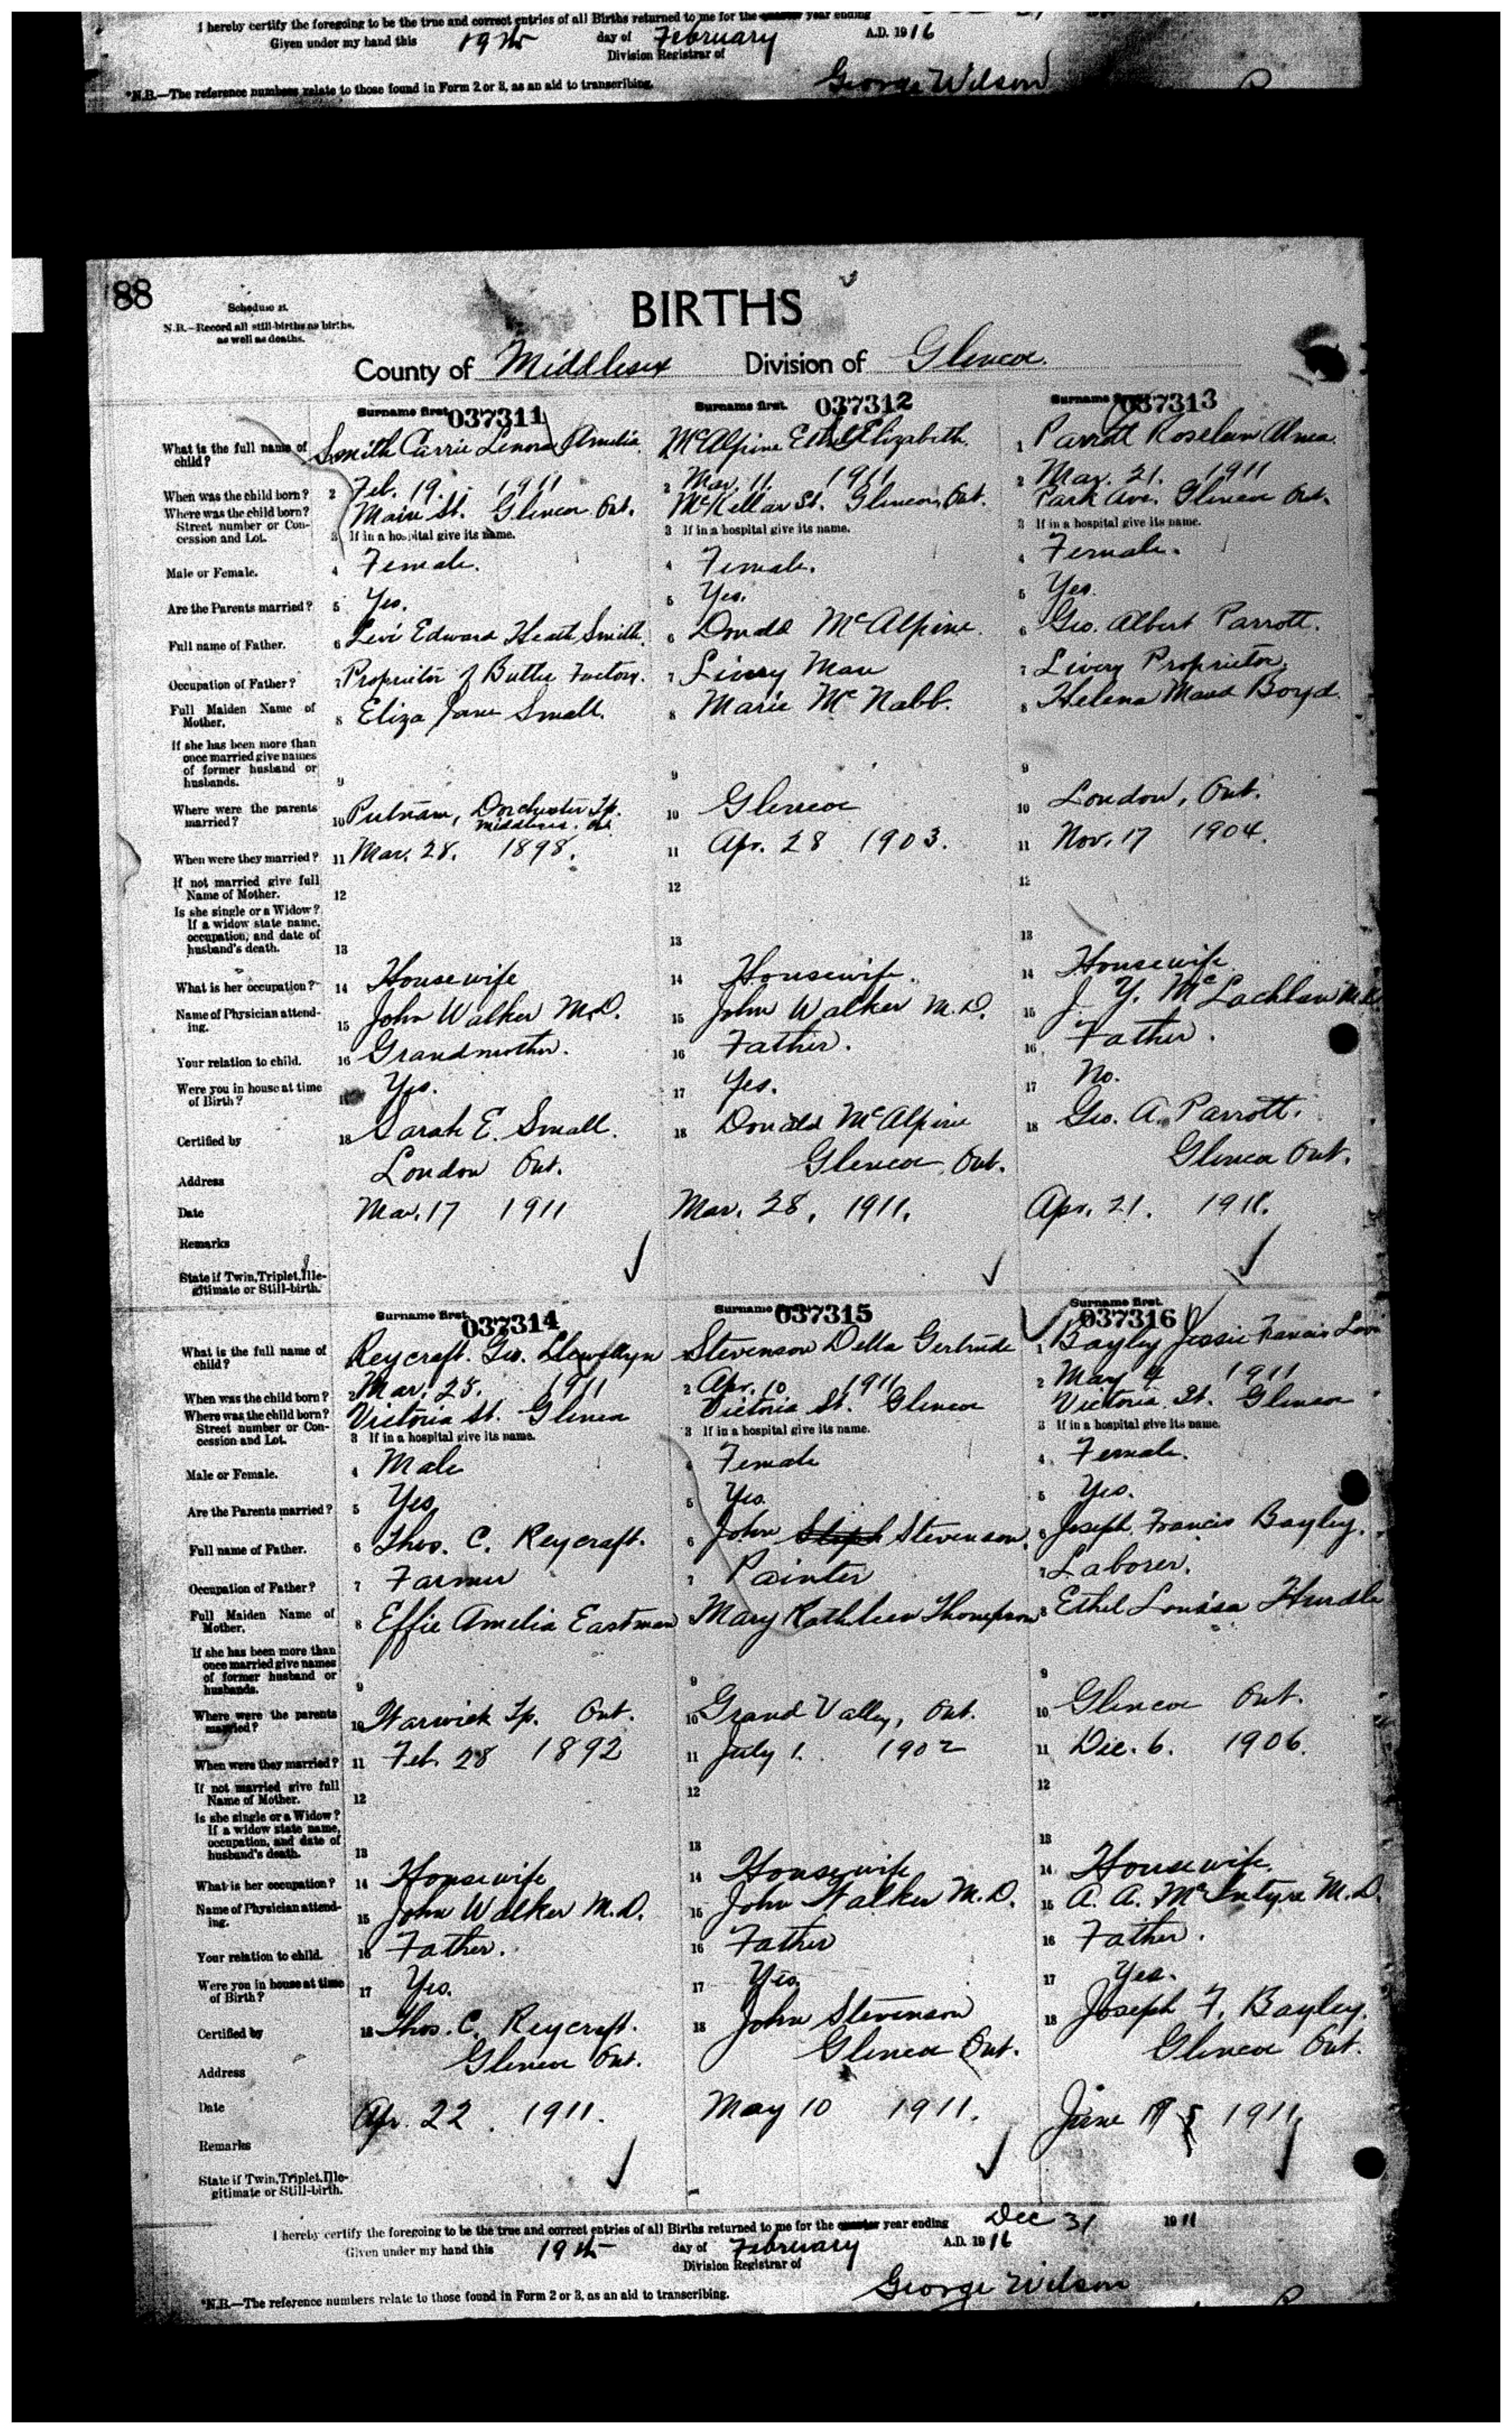 I hereby certify the foregoing to be the true and correct entries of all Births returned to me for the quarter year ending
Given under my hand this 19th day of February A.D. 1916
Division Registrar of
George Wilson
*N.B.—The reference numbers relate to those found in Form 2 or 3, as an aid to transcribing.
88
Schedule A.
N.B.—Record all still-births as births, as well as deaths.
BIRTHS
County of Middlesex Division of Glencoe.
Surname first. 037311 Surname first. 037312 Surname first. 037313
What is the full name of child? Smith Carrie Lenora Amelia McAlpine Ethel Elizabeth. 1 Parrott Roseleen Alma.
When was the child born? 2 Feb. 19. 1911 2 Mar. 11. 1911 2 Mar. 21. 1911
Where was the child born? Street number or Concession and Lot. Main St. Glencoe Ont. McKellar St. Glencoe, Ont. Park Ave. Glencoe Ont.
3 If in a hospital give its name. 3 If in a hospital give its name. 3 If in a hospital give its name.
Male or Female. 4 Female. 4 Female. 4 Female.
Are the Parents married? 5 Yes. 5 Yes. 5 Yes.
Full name of Father. 6 Levi Edward Heath Smith. 6 Donald McAlpine. 6 Geo. Albert Parrott.
Occupation of Father? 7 Proprietor of Butter Factory. 7 Livery Man 7 Livery Proprietor.
Full Maiden Name of Mother. 8 Eliza Jane Small. 8 Marie McNabb. 8 Helena Maud Boyd.
If she has been more than once married give names of former husband or husbands. 9 9 9
Where were the parents married? 10 Putnam, Dorchester Tp. Middlesex. Ont 10 Glencoe 10 London, Ont.
When were they married? 11 Mar. 28. 1898. 11 Apr. 28 1903. 11 Nov. 17 1904.
If not married give full Name of Mother. 12 12 12
Is she single or a Widow? If a widow state name, occupation, and date of husband's death. 13 13 13
What is her occupation? 14 Housewife 14 Housewife. 14 Housewife
Name of Physician attending. 15 John Walker M.D. 15 John Walker M.D. 15 J. Y. McLachlan M.D.
Your relation to child. 16 Grandmother. 16 Father. 16 Father.
Were you in house at time of Birth? Yes. 17 Yes. 17 No.
Certified by 18 Sarah E. Small. 18 Donald McAlpine 18 Geo. A. Parrott.
Address London Ont. Glencoe, Ont. Glencoe Ont.
Date Mar. 17 1911 Mar. 28, 1911. Apr. 21. 1911.
Remarks
State if Twin, Triplet, Illegitimate or Still-birth.
Surname first. 037314 Surname first. 037315 Surname first. 037316
What is the full name of child? Reycraft. Geo. Llewellyn Stevenson Della Gertrude 1 Bayley Jessie Francis
When was the child born? 2 Mar. 25. 1911 2 Apr. 10 1911 2 May 4 1911
Where was the child born? Street number or Concession and Lot. Victoria St. Glencoe Victoria St. Glencoe Victoria St. Glencoe
3 If in a hospital give its name. 3 If in a hospital give its name. 3 If in a hospital give its name.
Male or Female. 4 Male 4 Female 4 Female.
Are the Parents married? 5 Yes 5 Yes 5 Yes.
Full name of Father. 6 Thos. C. Reycraft. 6 John Steph Stevenson. 6 Joseph Francis Bayley.
Occupation of Father? 7 Farmer 7 Painter 7 Laborer.
Full Maiden Name of Mother. 8 Effie Amelia Eastman Mary Kathleen Thompson 8 Ethel Louisa Hurdle
If she has been more than once married give names of former husband or husbands. 9 9 9
Where were the parents married? 10 Warwick Tp. Ont. 10 Grand Valley, Ont. 10 Glencoe Ont.
When were they married? 11 Feb. 28 1892 11 July 1. 1902 11 Dec. 6. 1906.
If not married give full Name of Mother. 12 12 12
Is she single or a Widow? If a widow state name, occupation, and date of husband's death. 13 13 13
What is her occupation? 14 Housewife 14 Housewife 14 Housewife.
Name of Physician attending. 15 John Walker M.D. 15 John Walker M.D. 15 A. A. McIntyre M.D.
Your relation to child. 16 Father. 16 Father 16 Father.
Were you in house at time of Birth? 17 Yes. 17 Yes. 17 Yes.
Certified by 18 Thos. C. Reycraft. 18 John Stevenson 18 Joseph F. Bayley.
Address Glencoe Ont. Glencoe Ont. Glencoe Ont.
Date Apr. 22. 1911. May 10 1911. June 1911.
Remarks
State if Twin, Triplet, Illegitimate or Still-birth.
I hereby certify the foregoing to be the true and correct entries of all Births returned to me for the quarter year ending Dec 31 1911
Given under my hand this 19th day of February A.D. 1916
Division Registrar of
George Wilson
*N.B.—The reference numbers relate to those found in Form 2 or 3, as an aid to transcribing.